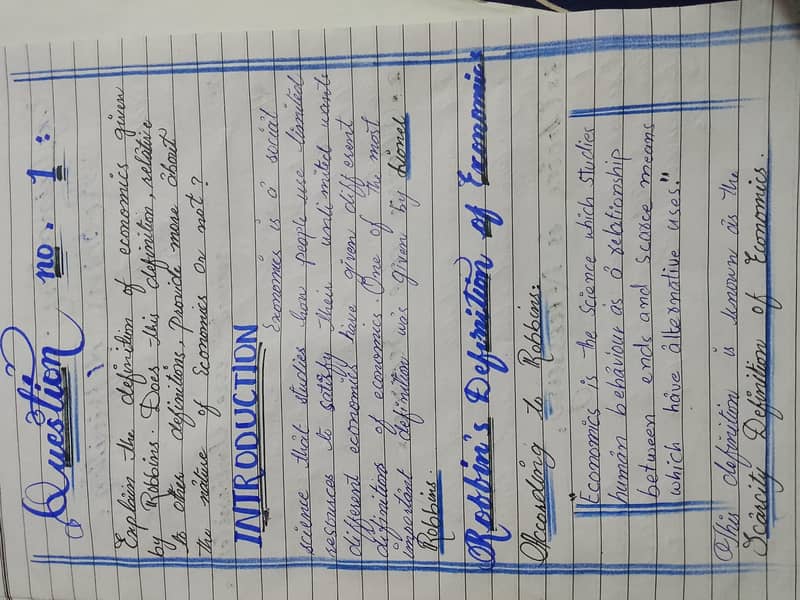 Question no. 1:
Explain the definition of economics given
by Robbins. Does this definition, relative
to other definitions, Provide more about
the nature of Economics or not?
INTRODUCTION
Economics is a social
science that studies how people use limited
resources to satisfy their unlimited wants
different economists have given different
definitions of economics. One of the most
important definition was given by Lionel
Robbins.
Robbin's Definition of Economics
According to Robbins:
"Economics is the science which studies
human behaviour as a relationship
between ends and scarce means
which have alternative uses."
This definition is known as the
Scarcity Definition of Economics.